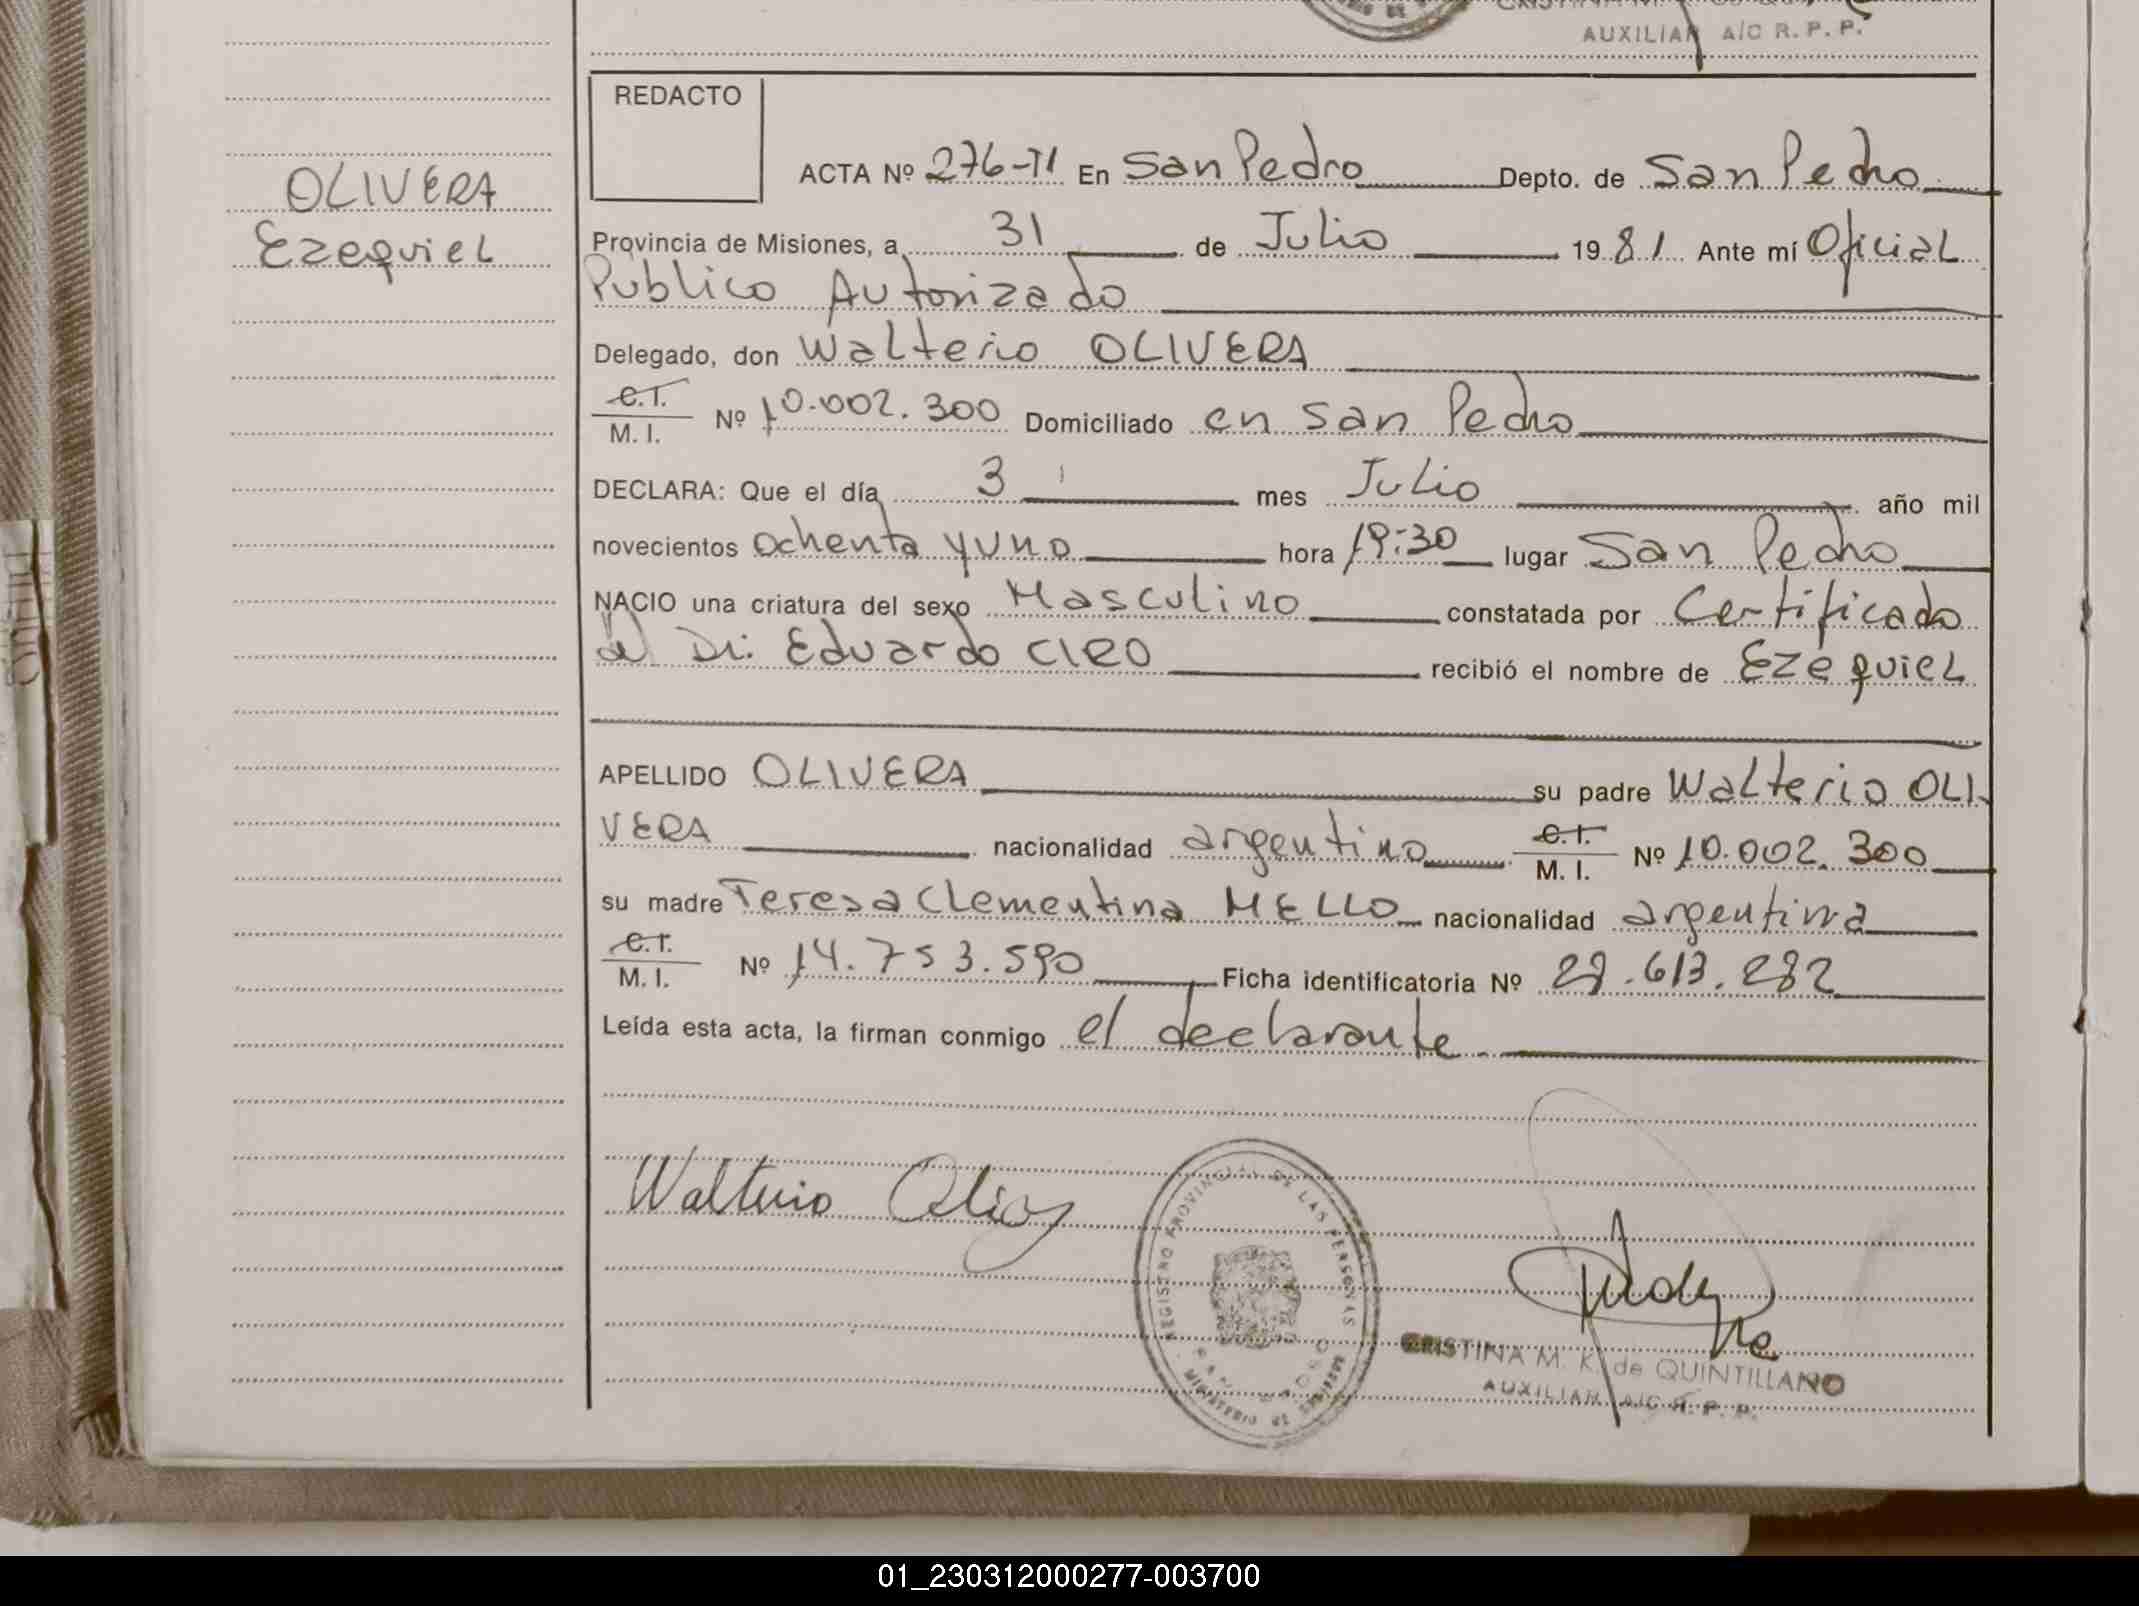 AUXILIAR A/C R. P. P.
REDACTO
ACTA Nº 276-TI En San Pedro Depto. de San Pedro
OLIVERA
Ezequiel
Provincia de Misiones, a 31 de Julio 1981 Ante mí Oficial
Publico Autorizado
Delegado, don Walterio OLIVERA
C.I.
M. I. Nº 10.002.300 Domiciliado en San Pedro
DECLARA: Que el día 3 mes Julio año mil
novecientos ochenta y uno hora 19:30 lugar San Pedro
NACIO una criatura del sexo Masculino constatada por Certificado
del Dr. Eduardo CIRO recibió el nombre de Ezequiel
APELLIDO OLIVERA su padre Walterio OLI-
VERA nacionalidad argentino C.I.
M. I. Nº 10.002.300
su madre Teresa Clementina MELLO nacionalidad argentina
C.I.
M. I. Nº 14.753.590 Ficha identificatoria Nº 28.613.282
Leída esta acta, la firman conmigo el declarante
Walterio
REGISTRO PROVINCIAL DE LAS PERSONAS
CRISTINA M. K. de QUINTILLANO
AUXILIAR A/C R. P. P.
01_230312000277-003700